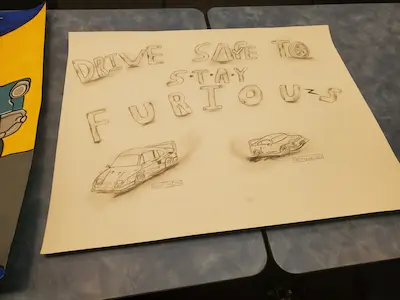 DRIVE SAFE TO
S·T·A·Y
FURIOUS